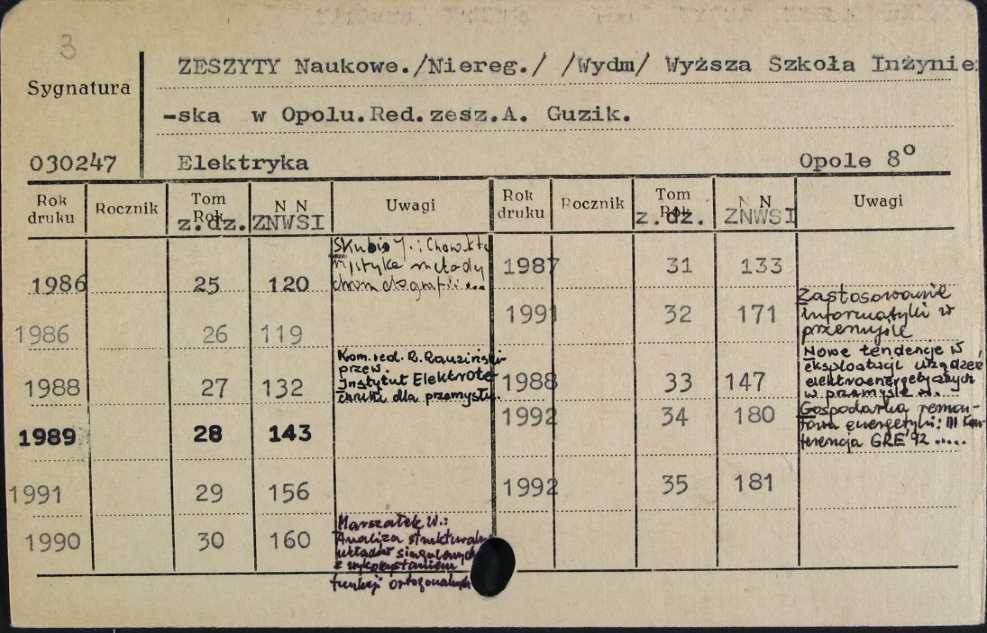 3
ZESZYTY Naukowe./Niereg./ /Wydm/ Wyższa Szkoła Inżynie
Sygnatura
-ska w Opolu.Red.zesz.A. Guzik.
030247 Elektryka Opole 8°
Rok druku Rocznik Tom Rok z.dz. N N ZNWSI Uwagi Rok druku Rocznik Tom Rok z.dz. N N ZNWSI Uwagi
1986 25 120 Skubis J.: Charakte
rystyka metody
1986 26 119
1988 27 132 Kom. red. R. Rauziński
przew.
Instytut Elektrote
chniki dla przemysłu.
1989 28 143
1991 29 156
1990 30 160 Marszałek W.:
Analiza strukturalna
układów singularnych
z wykorzystaniem
funkcji ortogonalnych
1987 31 133
1991 32 171 Zastosowanie
informatyki w
przemyśle
1988 33 147 Nowe tendencje w
eksploatacji urządzeń
elektroenergetycznych
w przemyśle
1992 34 180 Gospodarka remon-
towa energetyki: III Kon-
ferencja GRE'92 .....
1992 35 181